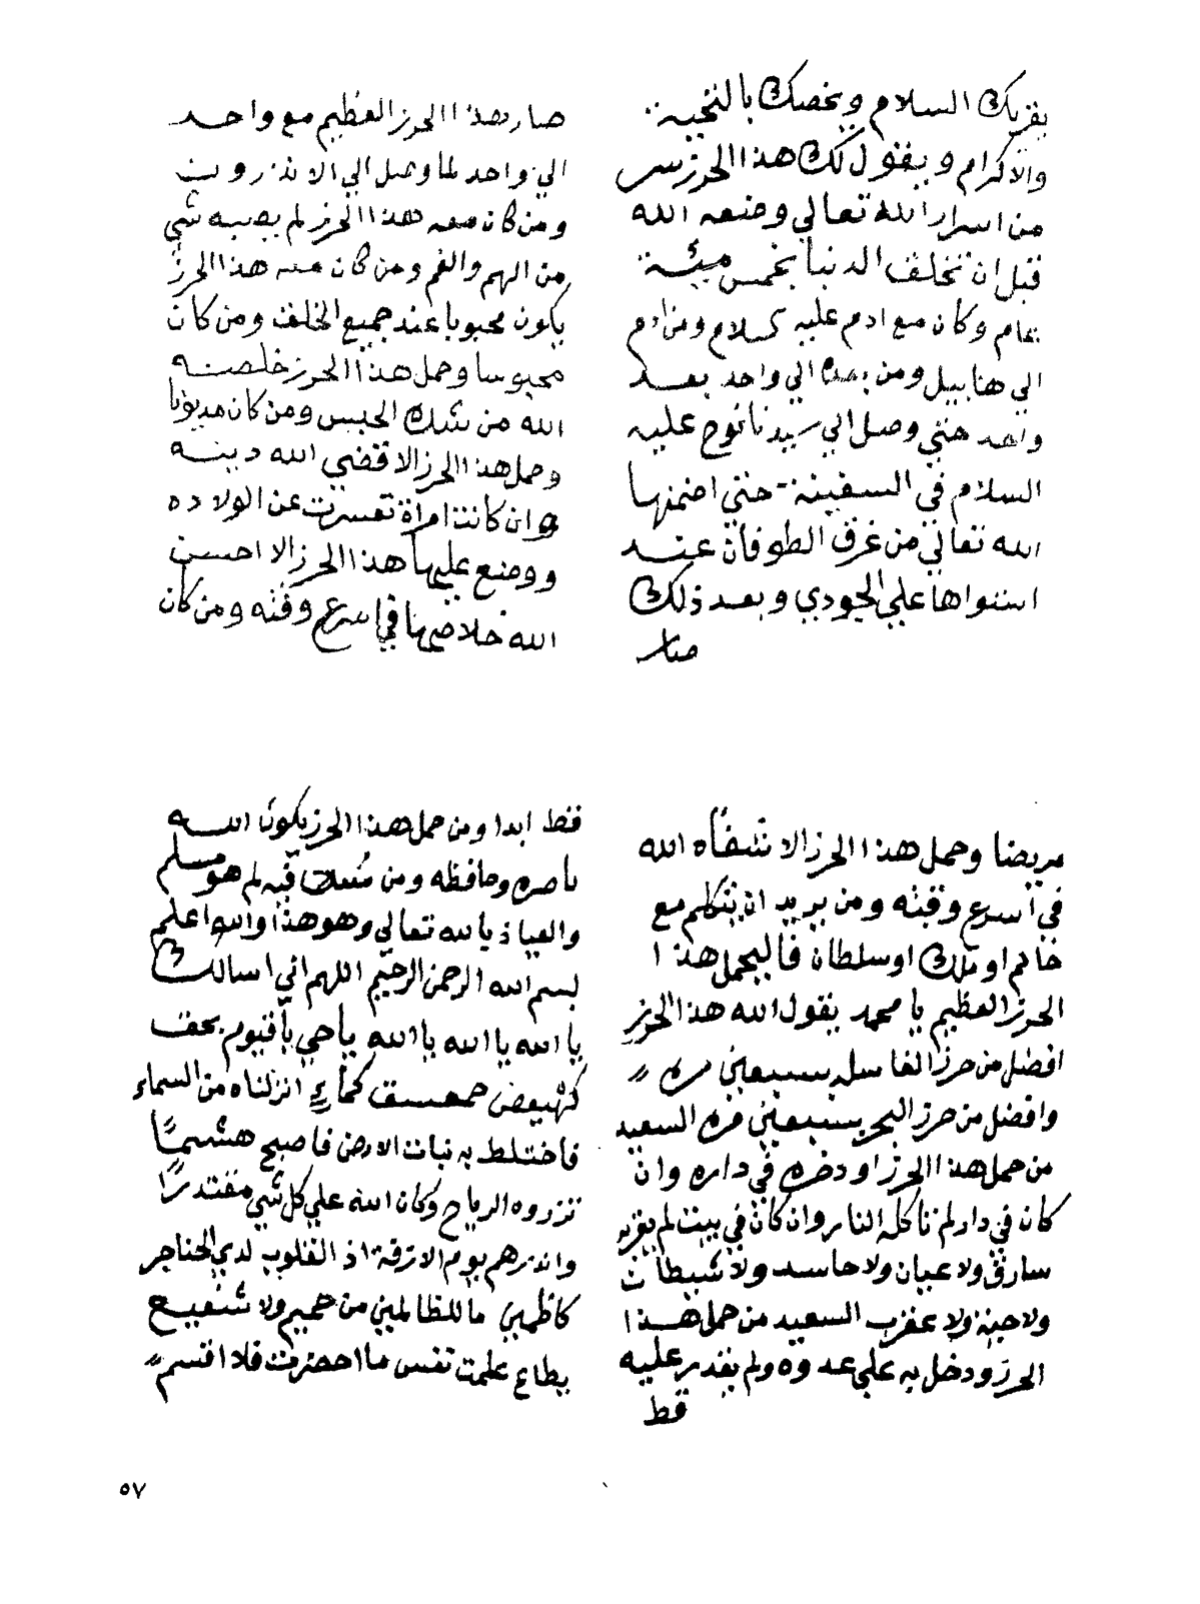 يقريك السلام ويخصك بالتحية
والاكرام ويقول لك هذا الحرز سر
من اسرار الله تعالي وضعه الله
قبل ان تخلق الدنيا بخمس مئة
عام وكان مع ادم عليه السلام ومن ادم
الي هنابيل ومن بعده الي واحد بعد
واحد حتي وصل الي سيدنا نوح عليه
السلام في السفينة حتي
الله تعالي من غرق الطوفان عند
استواها علي الجودي وبعد ذلك
صار
صار هذا الحرز العظيم مع واحد
الي واحد لما وصل الي
ومن كان معه هذا الحرز لم يصيبه شي
من الهم والغم ومن كان معه هذا الحرز
يكون محبوبا عند جميع الخلق ومن كان
محبوسا وحمل هذا الحرز خلصه
الله من شدة الحبس ومن كان مديونا
وحمل هذا الحرز الا قضي الله دينه
وان كانت امراة تعسرت عن الولاده
ووضع عليها هذا الحرز الا احسن
الله خلاصها في اسرع وقته ومن كان
مريضا وحمل هذا الحرز الا شفاه الله
في اسرع وقته ومن يريد ان يتكلم مع
حاكم او ملك او سلطان فاليحمل هذا
الحرز العظيم يا محمد يقول الله هذا الحرز
افضل من حرز الغاسله بسبعين مره
وافضل من حرز البحر بسبعين مره السعيد
من حمل هذا الحرز او دخره في داره وان
كان في دار لم تاكله النار وان كان في بيت لم يقربه
سارق ولا عيان ولا حاسد ولا شيطان
ولا حية ولا عقرب السعيد من حمل هذا
الحرز ودخل به علي عدوه ولم يقدر عليه
قط
قط ابدا ومن حمل هذا الحرز يكون الله
ناصره وحافظه ومن فيه لم هو مسلم
والعياذ بالله تعالي وهو هذا والله اعلم
بسم الله الرحمن الرحيم اللهم اني اسالك
يا الله يا الله يا الله يا حي يا قيوم بحق
كهيعص حمعسق كماء انزلناه من السماء
فاختلط به نبات الارض فاصبح هشيمًا
تزروه الرياح وكان الله علي كل شي مقتدرًا
وانذرهم يوم الازفة اذ القلوب لدي الحناجر
كاظمين ما للظالمين من حميم ولا شفيع
يطاع علمت نفس ما احضرت فلا اقسم
٥٧